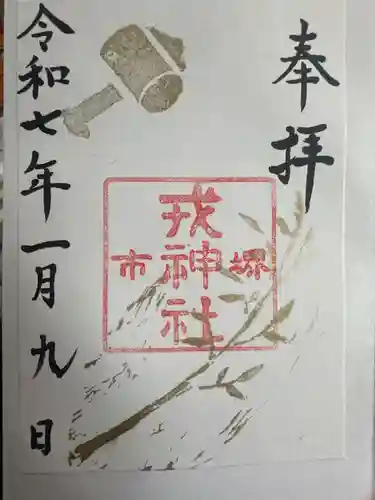 奉拝
堀
戎神社
市
令和七年一月九日